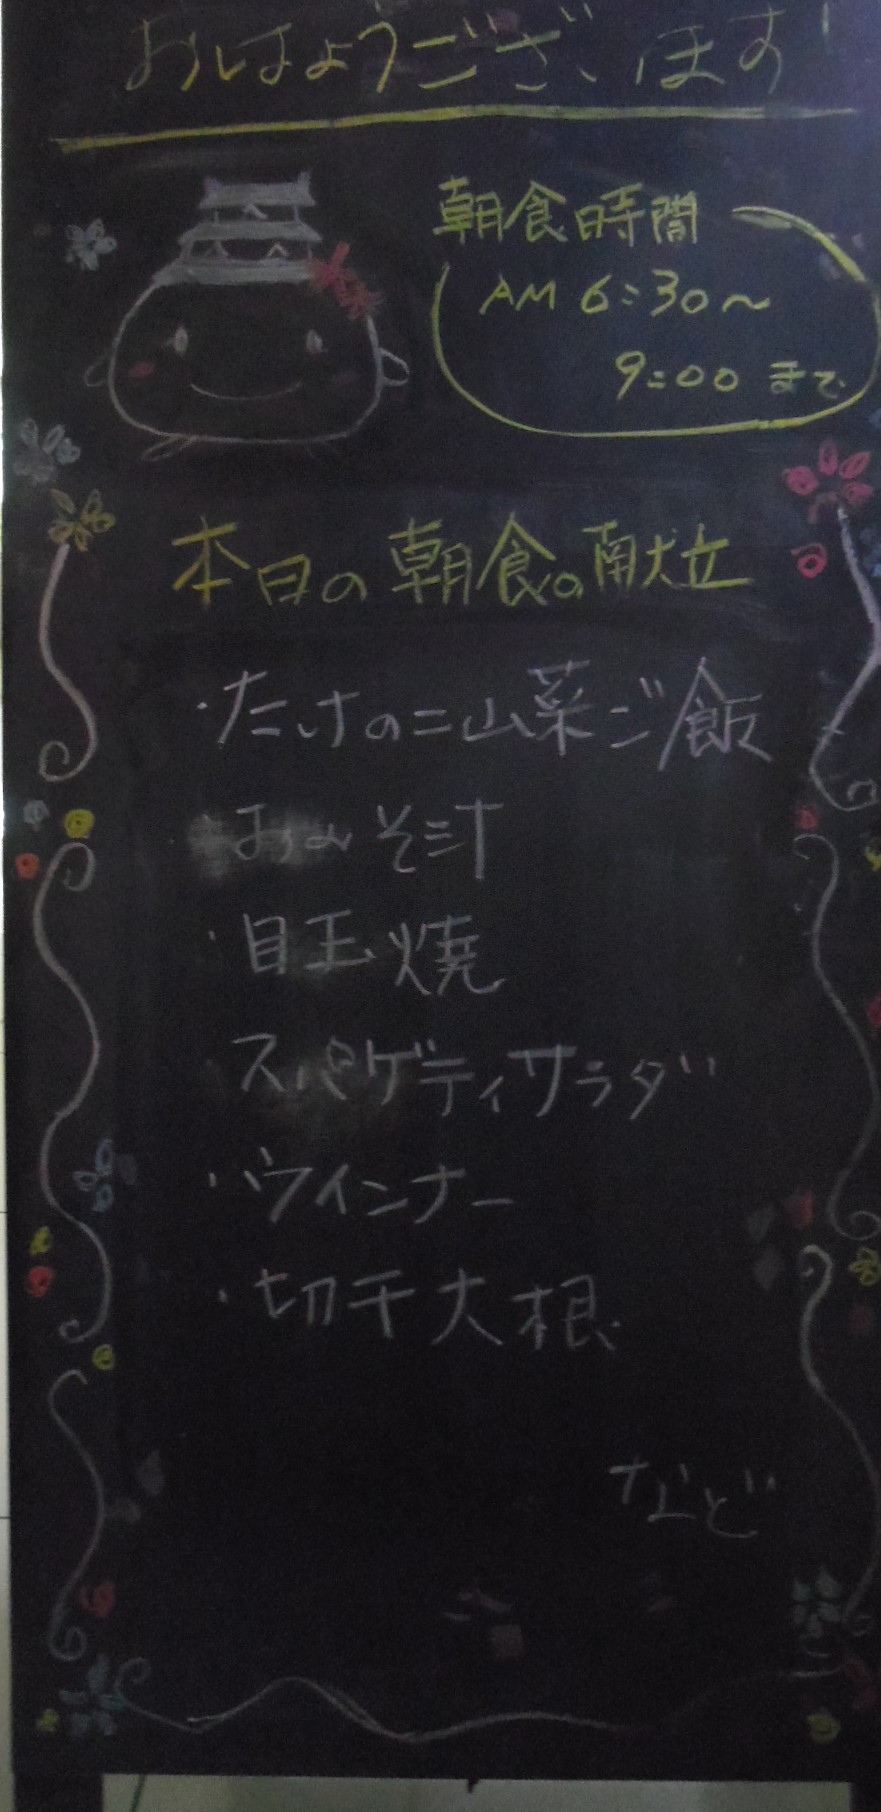 おはようございます!
朝食時間
AM 6:30～
9:00 まで
本日の朝食の献立
・たけのこ山菜ご飯
・おみそ汁
・目玉焼
・スパゲティサラダ
・ウインナー
・切干大根
など